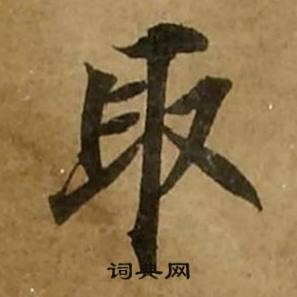 取
词典网